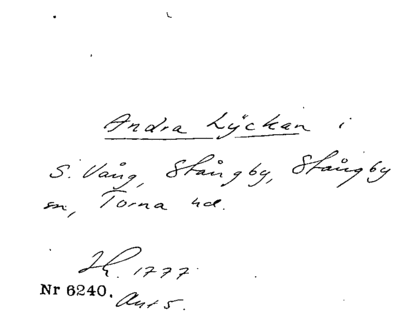 Andra Lÿckan i
S. Vång, Stångby, Stångby
sn, Torna hd.
Lh. 1777.
Nr 6240. Ant 5.